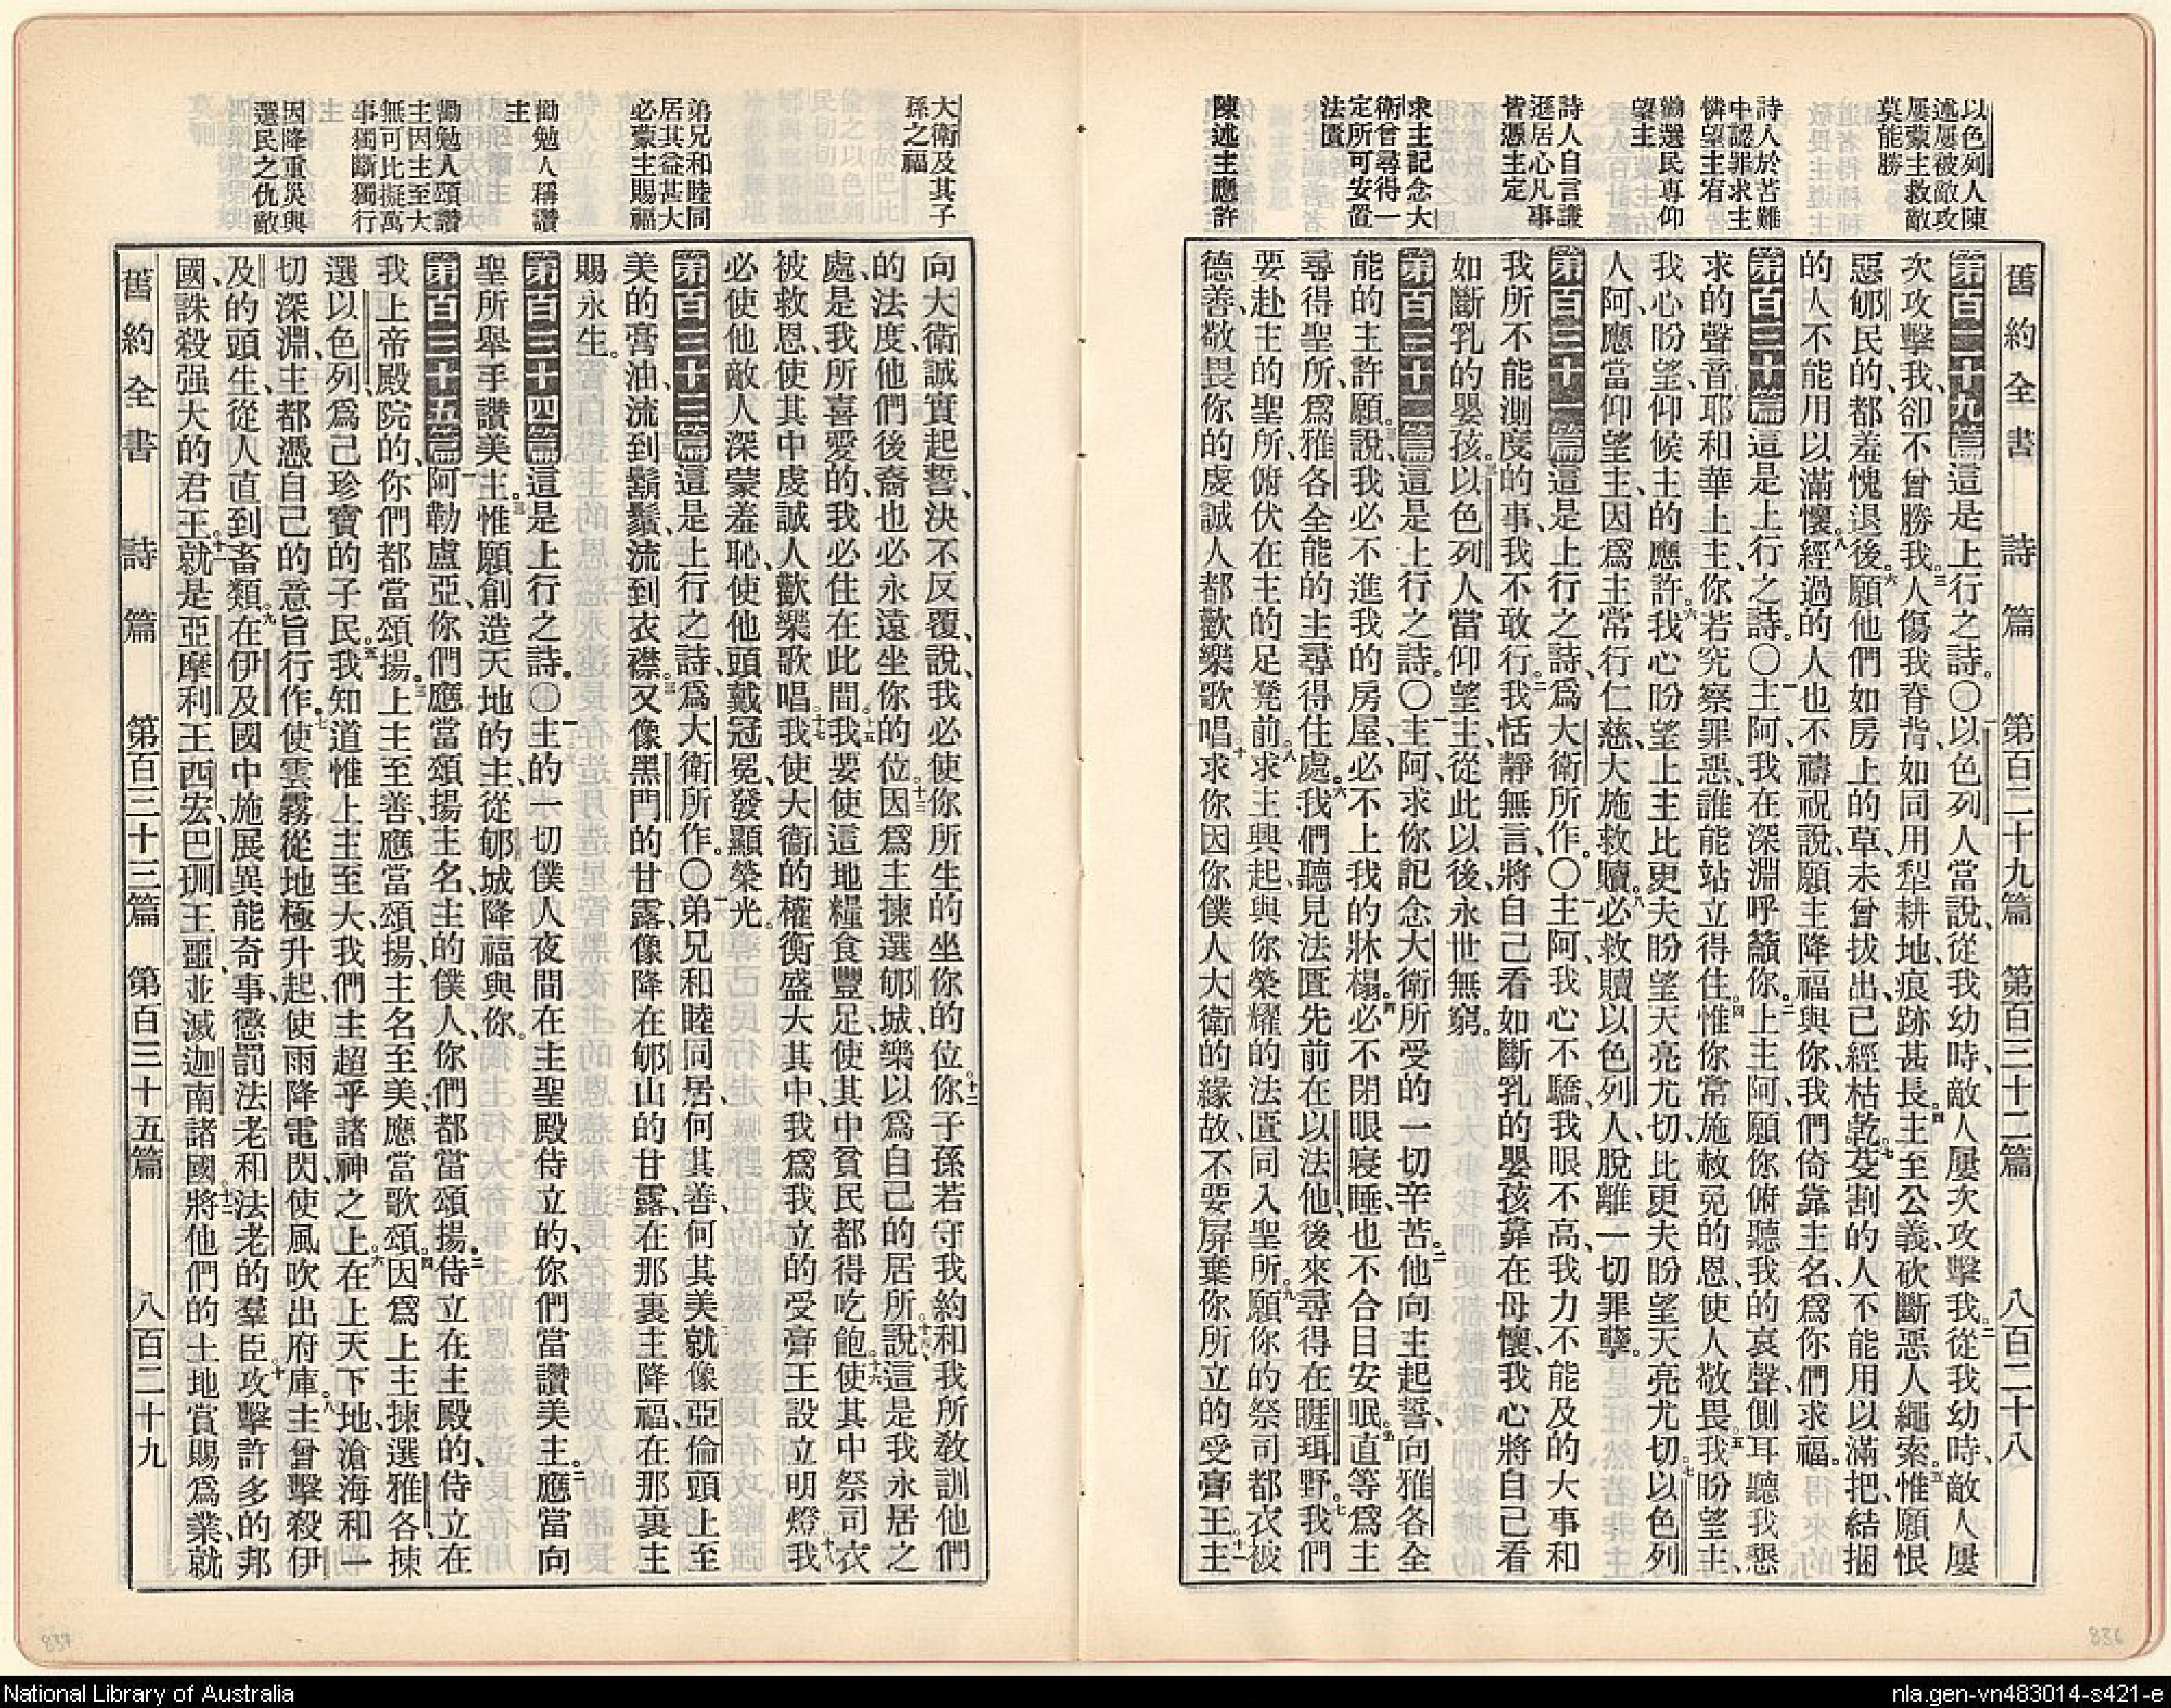 以色列人陳
述屢被敵攻
屢蒙主救敵
莫能勝
詩人於苦難
中認罪求主
憐望主宥
勸選民專仰
望主
詩人自言謙
遜居心凡事
皆憑主定
求主記念大
衛曾尋得一
定所可安置
法匱
陳述主應許
舊約全書 詩篇 第百二十九篇 第百三十二篇 八百二十八
第百二十九篇這是上行之詩。〇一以色列人當說、從我幼時、敵人屢次攻擊我。二從我幼時、敵人屢
次攻擊我、卻不曾勝我。三人傷我脊背、如同用犁耕地、痕跡甚長。四主至公義、砍斷惡人繩索。五惟願恨
惡郇民的、都羞愧退後。六願他們如房上的草、未曾拔出、已經枯乾。七芟割的人不能用以滿把、結捆
的人不能用以滿懷。八經過的人也不禱祝說、願主降福與你、我們倚靠主名、爲你們求福。
第百三十篇這是上行之詩。〇一主阿、我在深淵呼籲你。二上主阿、願你俯聽我的哀聲、側耳聽我懇
求的聲音。三耶和華上主、你若究察罪惡、誰能站立得住。四惟你常施赦免的恩、使人敬畏。五我盼望主、
我心盼望、仰候主的應許。六我心盼望上主、比更夫盼望天亮尤切、比更夫盼望天亮尤切。七以色列
人阿、應當仰望主、因爲主常行仁慈、大施救贖。八必救贖以色列人、脫離一切罪孽。
第百三十一篇這是上行之詩、爲大衛所作。〇一主阿、我心不驕、我眼不高、我力不能及的大事、和
我所不能測度的事、我不敢行。二我恬靜無言、將自己看如斷乳的嬰孩靠在母懷、我心將自己看
如斷乳的嬰孩。三以色列人當仰望主、從此以後、永世無窮。
第百三十二篇這是上行之詩。〇一主阿、求你記念大衛所受的一切辛苦。二他向主起誓、向雅各全
能的主許願。三說、我必不進我的房屋、必不上我的牀榻。四必不閉眼寢睡、也不合目安眠。五直等爲主
尋得聖所、爲雅各全能的主尋得住處。六我們聽見法匱先前在以法他、後來尋得在睚珥野。七我們
要赴主的聖所、俯伏在主的足凳前。八求主興起、與你榮耀的法匱同入聖所。九願你的祭司都衣被
德善、敬畏你的虔誠人都歡樂歌唱。十求你因你僕人大衛的緣故、不要屛棄你所立的受膏王。十一主
大衛及其子
孫之福
弟兄和睦同
居其益甚大
必蒙主賜福
勸勉人稱讚
主
勸勉人頌讚
主因主至大
無可比擬萬
事獨斷獨行
因降重災與
選民之仇敵
向大衛誠實起誓、決不反覆、說、我必使你所生的坐你的位。十二你子孫若守我約、和我所敎訓他們
的法度、他們後裔也必永遠坐你的位。十三因爲主揀選郇城、樂以爲自己的居所。十四說、這是我永居之
處、是我所喜愛的、我必住在此間。十五我要使這地糧食豐足、使其中貧民都得吃飽。十六使其中祭司衣
被救恩、使其中虔誠人歡樂歌唱。十七我使大衛的權衡盛大其中、我爲我立的受膏王設立明燈。十八我
必使他敵人深蒙羞恥、使他頭戴冠冕、發顯榮光。
第百三十三篇這是上行之詩、爲大衛所作。〇一弟兄和睦同居、何其善、何其美。二就像亞倫頭上至
美的膏油、流到鬍鬚、流到衣襟。三又像黑門的甘露、像降在郇山的甘露、在那裏主降福、在那裏主
賜永生。
第百三十四篇這是上行之詩。〇一主的一切僕人、夜間在主聖殿侍立的、你們當讚美主。二應當向
聖所舉手讚美主。三惟願創造天地的主、從郇城降福與你。
第百三十五篇一阿勒盧亞、你們應當頌揚主名、主的僕人、你們都當頌揚。二侍立在主殿的、侍立在
我上帝殿院的、你們都當頌揚。三上主至善、應當頌揚、主名至美、應當歌頌。四因爲上主揀選雅各、揀
選以色列、爲己珍寶的子民。五我知道惟上主至大、我們主超乎諸神之上。六在上天下地、滄海和一
切深淵、主都憑自己的意旨行作。七使雲霧從地極升起、使雨降電閃、使風吹出府庫。八主曾擊殺伊
及的頭生、從人直到畜類。九在伊及國中施展異能奇事、懲罰法老和法老的羣臣。十攻擊許多的邦
國、誅殺强大的君王。十一就是亞摩利王西宏、巴珊王噩、並滅迦南諸國。十二將他們的土地賞賜爲業、就
舊約全書 詩篇 第百三十三篇 第百三十五篇 八百二十九
837
836
National Library of Australia
nla.gen-vn483014-s421-e